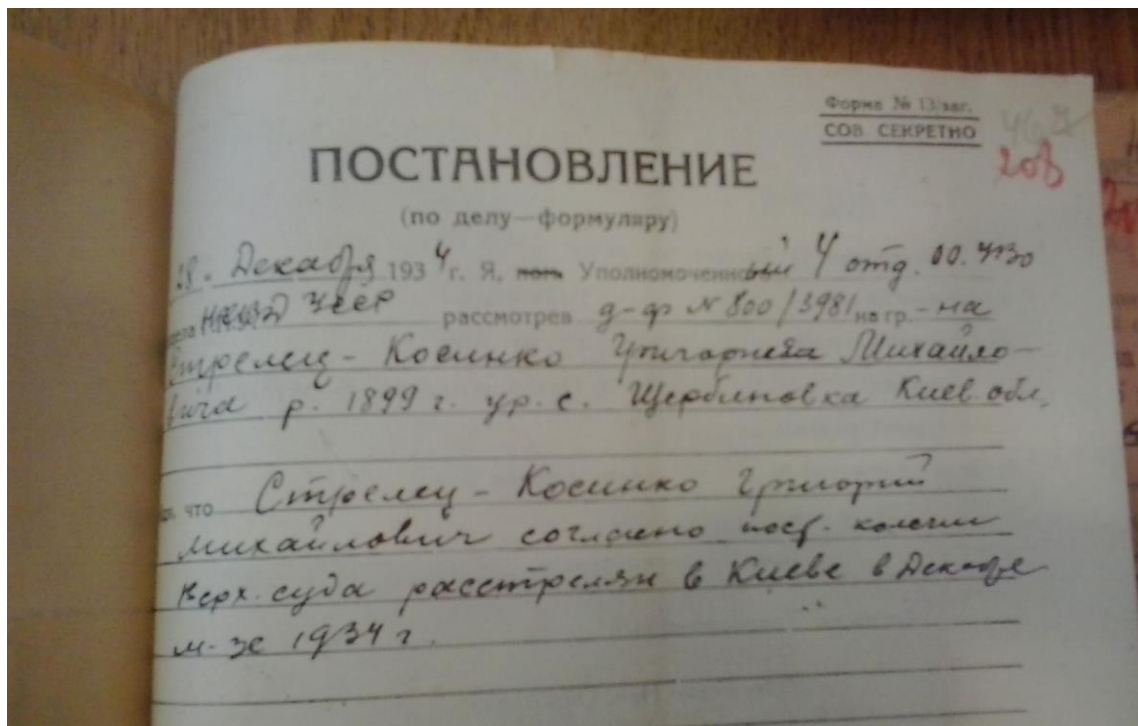 Форма № 13/заг.
СОВ. СЕКРЕТНО
206
ПОСТАНОВЛЕНИЕ
(по делу—формуляру)
28. Декабря 1934 г. Я, Уполномоченный 4 отд. ОО. УГБ
НКВД УССР рассмотрев д-ф № 800/3981 на гр.-на
Стрелец - Косинко Григория Михайло-
вича р. 1899 г. ур. с. Щербановка Киев. обл.
что Стрелец - Косинко Григорий
Михайлович согласно пост. колегии
Верх. суда расстрелян в Киеве в Декабре
м-це 1934 г.